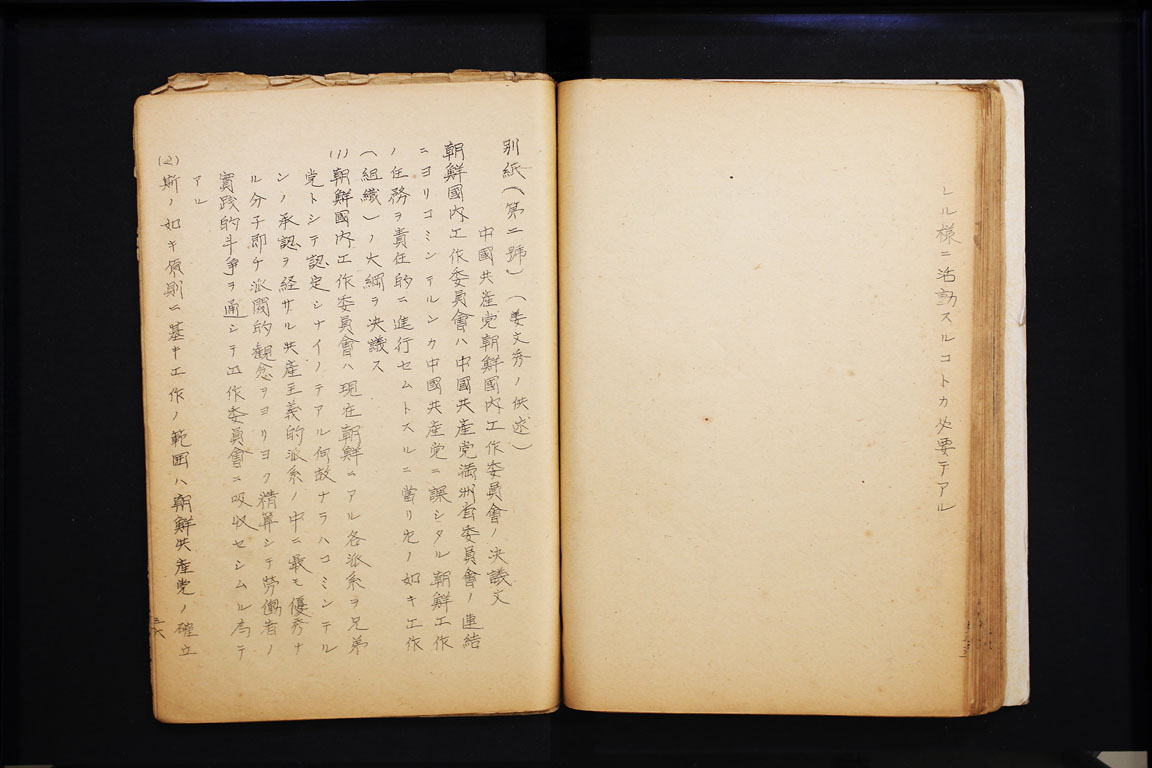 レル様ニ活動スルコトカ必要テアル
別紙(第二號)(姜文秀ノ供述)
中國共産党朝鮮國内工作委員會ノ決議文
朝鮮國内工作委員會ハ中國共産党満洲省委員會ノ連結
ニヨリコミンテルンカ中國共産党ニ課シタル朝鮮工作
ノ任務ヲ責任的ニ進行セムトスルニ當リ左ノ如キ工作
(組織)ノ大綱ヲ决議ス
(1)朝鮮國内工作委員會ハ現在朝鮮ニアル各派系ヲ兄弟
党トシテ認定シナイノテアル何故ナラハコミンテル
ンノ承認ヲ経サル共産主義的派系ノ中ニ最モ優秀ナ
ル分子即チ派閥的観念ヲヨリヨク精算シテ労働者ノ
實践的斗争ヲ通シテ工作委員會ニ吸收セシムル為テ
アル
(2)斯ノ如キ原則ニ基キ工作ノ範囲ハ朝鮮共産党ノ確立
五六